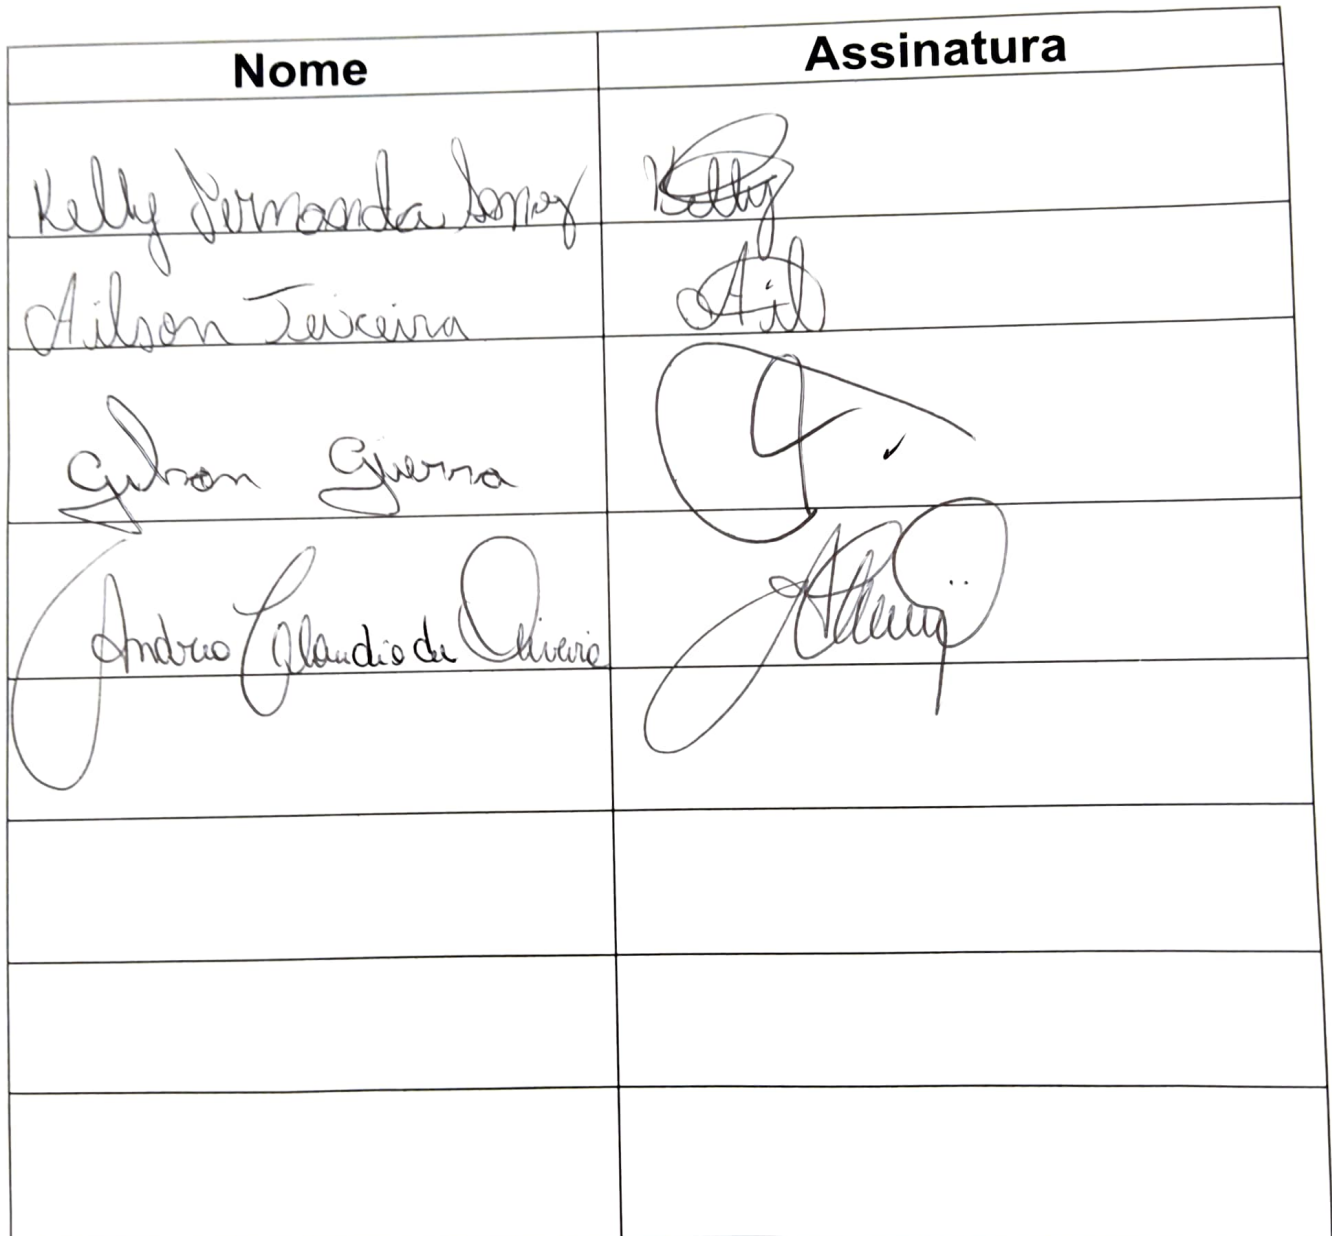 Nome Assinatura
Kelly Fernanda Kelly
Ailson Teixeira Ail
Gilson Guerra
Claudio de Oliveira